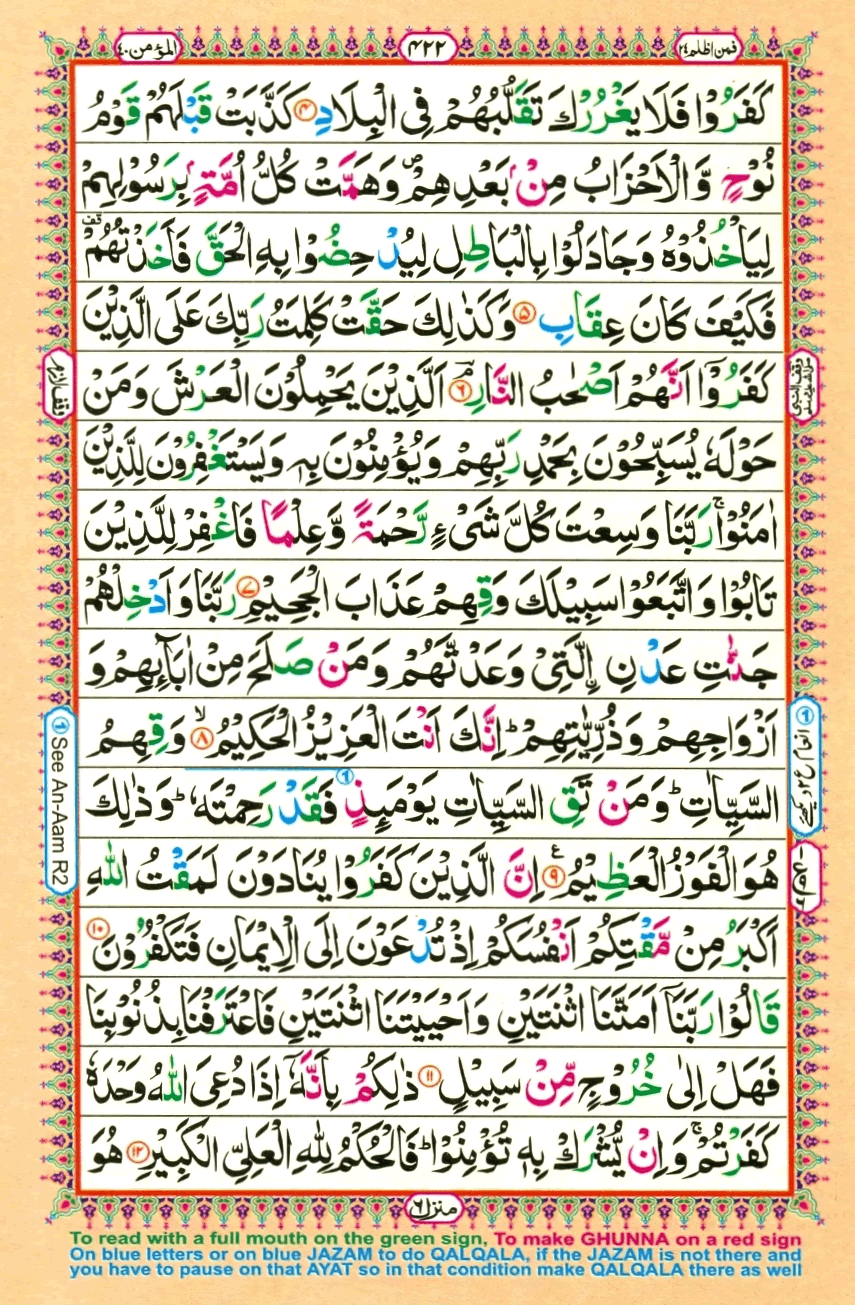 المؤمن ٤٠
٤٢٢
فمن اظلم ٢٤
كَفَرُوْا فَلَا يَغْرُرْكَ تَقَلُّبُهُمْ فِى الْبِلَادِ ۴ كَذَّبَتْ قَبْلَهُمْ قَوْمُ
نُوْحٍ وَّالْاَحْزَابُ مِنْۢ بَعْدِهِمْ ۪ وَهَمَّتْ كُلُّ اُمَّةٍۭ بِرَسُوْلِهِمْ
لِيَاْخُذُوْهُ وَجَادَلُوْا بِالْبَاطِلِ لِيُدْحِضُوْا بِهِ الْحَقَّ فَاَخَذْتُهُمْ قف
فَكَيْفَ كَانَ عِقَابِ ۵ وَكَذٰلِكَ حَقَّتْ كَلِمَتُ رَبِّكَ عَلَى الَّذِيْنَ
كَفَرُوْۤا اَنَّهُمْ اَصْحٰبُ النَّارِ ۘ ۶ اَلَّذِيْنَ يَحْمِلُوْنَ الْعَرْشَ وَمَنْ
حَوْلَهٗ يُسَبِّحُوْنَ بِحَمْدِ رَبِّهِمْ وَيُؤْمِنُوْنَ بِهٖ وَيَسْتَغْفِرُوْنَ لِلَّذِيْنَ
اٰمَنُوْا ۚ رَبَّنَا وَسِعْتَ كُلَّ شَىْءٍ رَّحْمَةً وَّعِلْمًا فَاغْفِرْ لِلَّذِيْنَ
تَابُوْا وَاتَّبَعُوْا سَبِيْلَكَ وَقِهِمْ عَذَابَ الْجَحِيْمِ ۷ رَبَّنَا وَاَدْخِلْهُمْ
جَنّٰتِ عَدْنِ ۨالَّتِىْ وَعَدْتَّهُمْ وَمَنْ صَلَحَ مِنْ اٰبَآئِهِمْ وَ
اَزْوَاجِهِمْ وَذُرِّيّٰتِهِمْ ؕ اِنَّكَ اَنْتَ الْعَزِيْزُ الْحَكِيْمُ ۙ ۸ وَقِهِمُ
السَّيِّاٰتِ ؕ وَمَنْ تَقِ السَّيِّاٰتِ يَوْمَئِذٍ ۱ فَقَدْ رَحِمْتَهٗ ؕ وَذٰلِكَ
هُوَ الْفَوْزُ الْعَظِيْمُ ۹ ع اِنَّ الَّذِيْنَ كَفَرُوْا يُنَادَوْنَ لَمَقْتُ اللّٰهِ
اَكْبَرُ مِنْ مَّقْتِكُمْ اَنْفُسَكُمْ اِذْ تُدْعَوْنَ اِلَى الْاِيْمَانِ فَتَكْفُرُوْنَ ۱۰
قَالُوْا رَبَّنَاۤ اَمَتَّنَا اثْنَتَيْنِ وَاَحْيَيْتَنَا اثْنَتَيْنِ فَاعْتَرَفْنَا بِذُنُوْبِنَا
فَهَلْ اِلٰى خُرُوْجٍ مِّنْ سَبِيْلٍ ۱۱ ذٰلِكُمْ بِاَنَّهٗۤ اِذَا دُعِىَ اللّٰهُ وَحْدَهٗ
كَفَرْتُمْ ۚ وَاِنْ يُّشْرَكْ بِهٖ تُؤْمِنُوْا ؕ فَالْحُكْمُ لِلّٰهِ الْعَلِىِّ الْكَبِيْرِ ۱۲ هُوَ
وقف لازم
۱ See An-Aam R2
منزل ٦
To read with a full mouth on the green sign, To make GHUNNA on a red sign
On blue letters or on blue JAZAM to do QALQALA, if the JAZAM is not there and
you have to pause on that AYAT so in that condition make QALQALA there as well